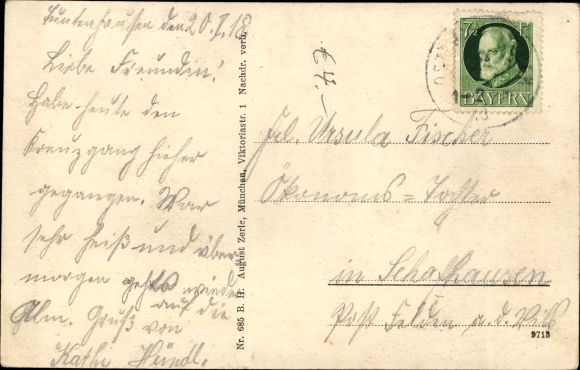 Tuntenhausen den 20. I. 18.
Liebe Freundin!
Habe heute den
Kreuzgang hieher
gegangen. War
sehr heiß und über-
morgen gehts wieder
auf die
Alm. Gruß von
Kathi
Nr. 685 B. H. August Zerle, München, Viktoriastr. 1 Nachdr. verb.
7½
BAYERN
Frl. Ursula Fischer
Ökonoms-Tochter
in Schalkhausen
Post Velden a. d. Vils
9713